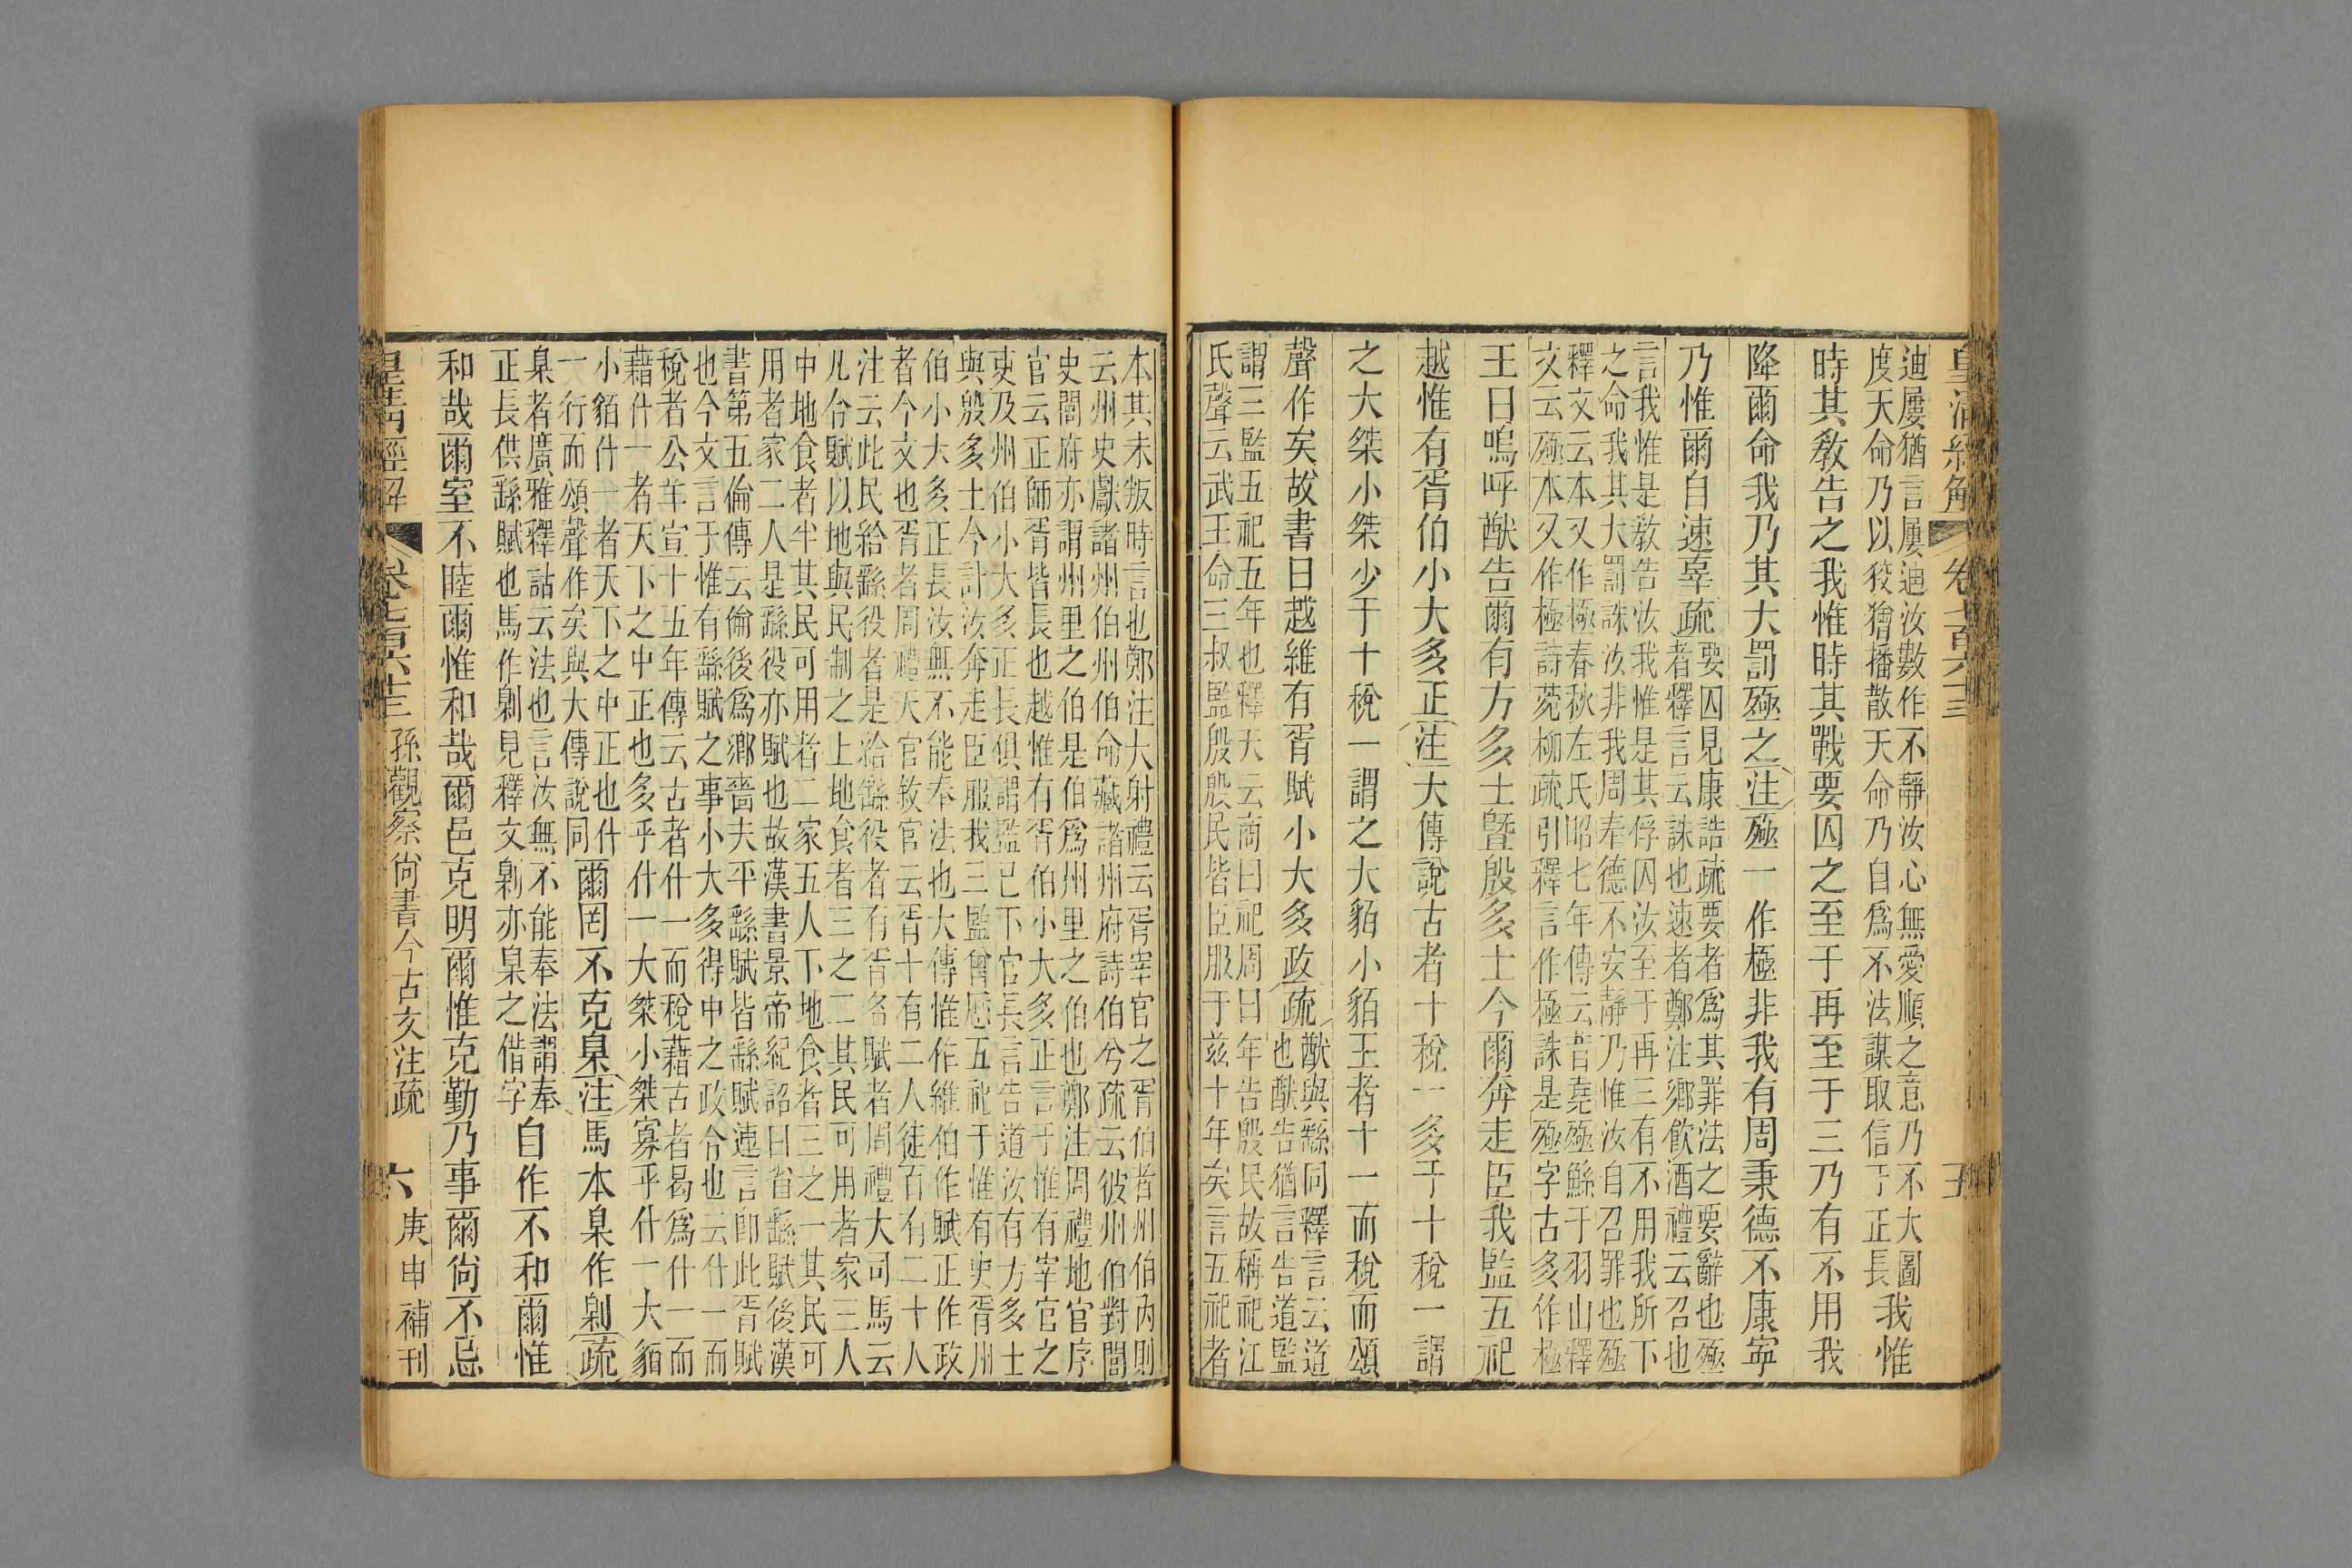 皇清經解 卷七百六十三 五
迪屢猶言屢迪汝數作不靜汝心無愛順之意乃不大圖
度天命乃以狡獪播散天命乃自爲不法謀取信于正長
我惟
時其敎告之我惟時其戰要囚之至于再至于三乃有不用我
降爾命我乃其大罰殛之注殛一作極非我有周秉德不康寧
乃惟爾自速辜疏
要囚見康誥疏要者爲其罪法之要辭也殛
者釋言云誅也速者鄭注鄉飮酒禮云召也
言我惟是敎告汝我惟是其俘囚汝至于再三有不用我所下
之命我其大罰誅汝非我周奉德不安靜乃惟汝自召罪也殛
釋文云本又作極春秋左氏昭七年傳云昔堯殛鯀于羽山釋
文云殛本又作極詩菀柳疏引釋言作極誅是殛字古多作極
王曰嗚呼猷告爾有方多士暨殷多士今爾奔走臣我監五祀
越惟有胥伯小大多正注大傳說古者十稅一多于十稅一謂
之大桀小桀少于十稅一謂之大貊小貊王者十一而稅而頌
聲作矣故書曰越維有胥賦小大多政疏
猷與繇同釋言云道
也猷告猶言告道監
謂三監五祀五年也釋天云商曰祀周曰年告殷民故稱祀江
氏聲云武王命三叔監殷殷民皆臣服于兹十年矣言五祀者
本其未叛時言也鄭注大射禮云胥宰官之胥伯者州伯內則
云州史獻諸州伯州伯命藏諸州府詩伯兮疏云彼州伯對閭
史閭府亦謂州里之伯是伯爲州里之伯也鄭注周禮地官序
官云正師胥皆長也越惟有胥伯小大多正言于惟有宰官之
吏及州伯小大多正長俱謂監已下官長言告道汝有方多士
與殷多士今計汝奔走臣服我三監曾歷五祀于惟有吏胥州
伯小大多正長汝無不能奉法也大傳惟作維伯作賦正作政
者今文也胥者周禮天官敘官云胥十有二人徒百有二十人
注云此民給繇役者是給繇役者有胥名賦者周禮大司馬云
凡令賦以地與民制之上地食者三之二其民可用者家三人
中地食者半其民可用者二家五人下地食者三之一其民可
用者家二人是繇役亦賦也故漢書景帝紀詔曰省繇賦後漢
書第五倫傳云倫後爲鄉嗇夫平繇賦皆繇賦連言卽此胥賦
也今文言于惟有繇賦之事小大多得中之政令也云什一而
稅者公羊宣十五年傳云古者什一而稅藉古者曷爲什一而
藉什一者天下之中正也多乎什一大桀小桀寡乎什一大貊
小貊什一者天下之中正也什
一行而頌聲作矣與大傳說同
爾罔不克臬注馬本臬作剿疏
臬者廣雅釋詁云法也言汝無不能奉法謂奉
正長供繇賦也馬作剿見釋文剿亦臬之借字
自作不和爾惟
和哉爾室不睦爾惟和哉爾邑克明爾惟克勤乃事爾尚不忌
皇淸經解 卷七百六十三 孫觀察尚書今古文注疏 六 庚申補刊